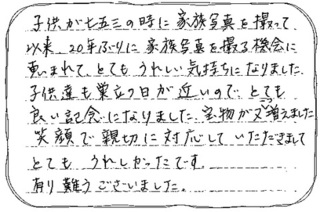 子供が七五三の時に家族写真を撮って
以来、20年ぶりに家族写真を撮る機会に
恵まれて、とてもうれしい気持ちになりました。
子供達も巣立つ日が近いので、とても
良い記念になりました。宝物が1つ増えました
笑顔で親切に対応していただきまして
とてもうれしかったです。
有り難うございました。